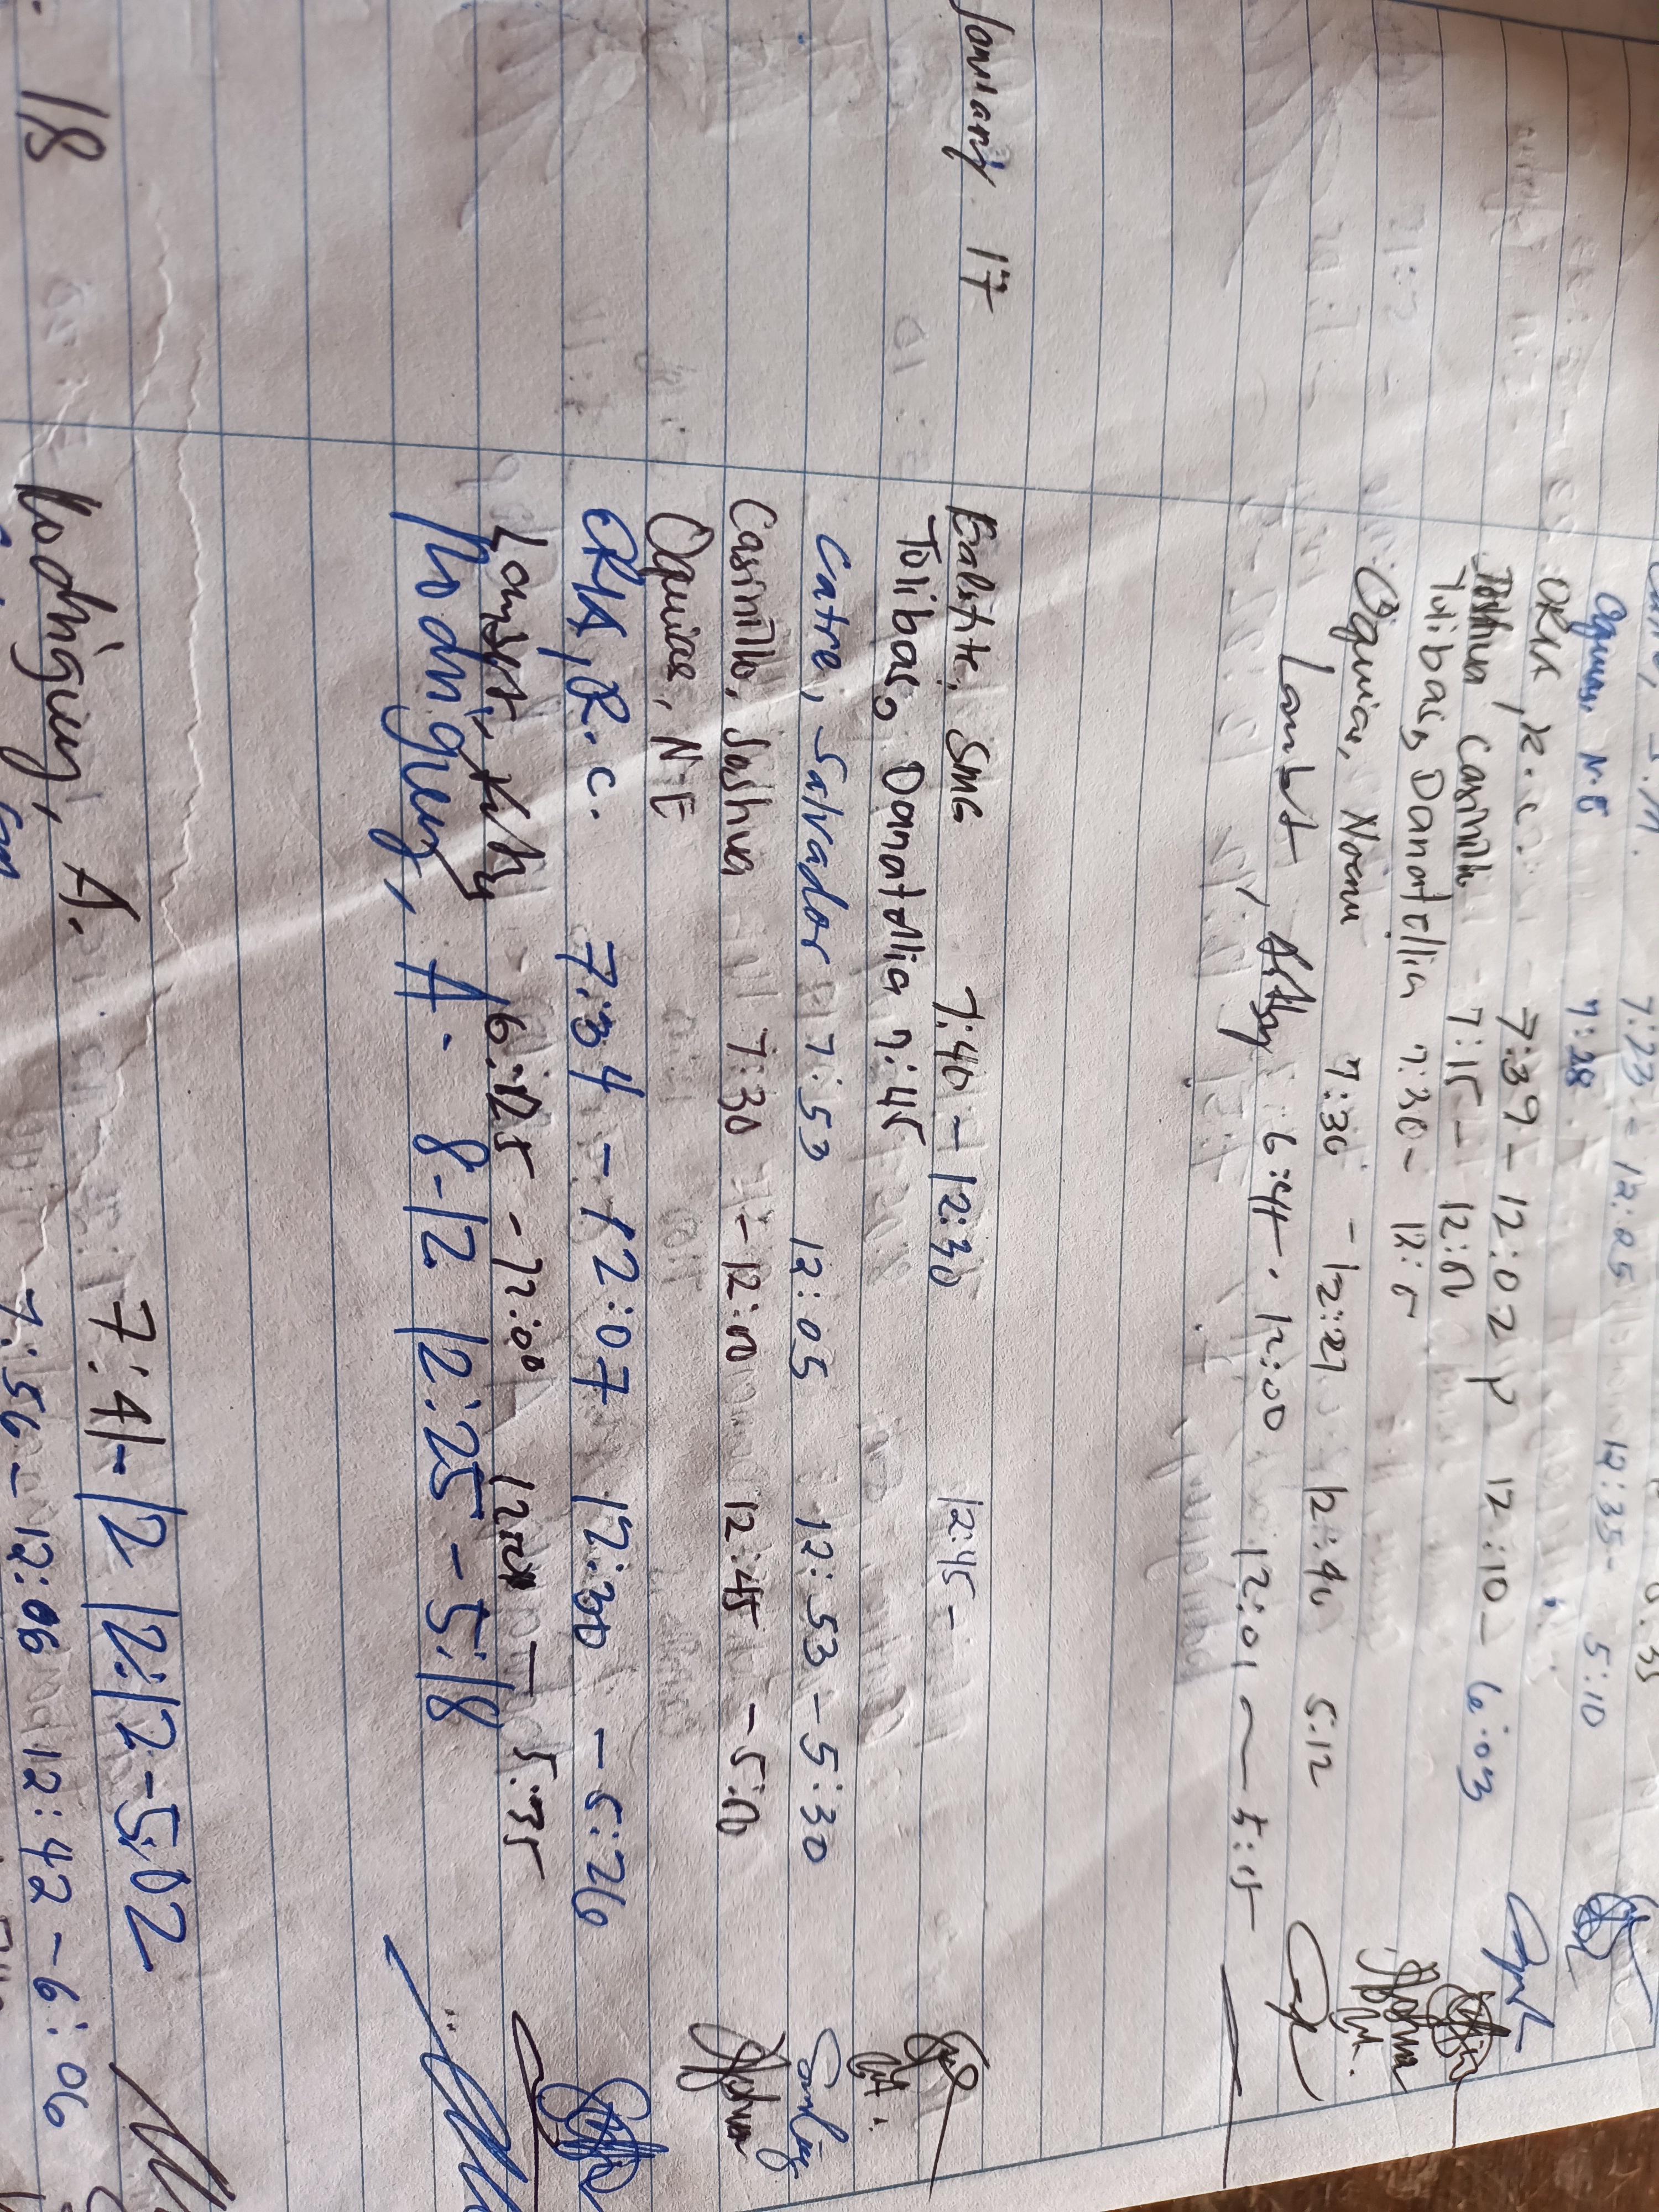 7:23 - 12:05
Oguias, N.E 7:28 12:35 - 5:10
ORIA, R.C. 7:39 - 12:02 P 12:10 - 6:03
Casinillo 7:15 - 12:00
Tolibas, Danatellia 7:30 - 12:5
Oguias, Noemi 7:30 - 12:27 12:40 5:12
6:44 - 12:00 12:01 - 5:15
January 17 Balste, SMG 7:40 - 12:30 12:45 -
Tolibas, Danatellia 7:45
Catre, Salvador 7:53 12:05 12:53 - 5:30
Casinillo, Joshua 7:30 - 12:00 12:45 - 5:00
Oguias, N.E
ORIA, R.C. 7:34 - 12:07 12:30 - 5:26
- 5:35
Rodriguez, A. 8-12 12:25 - 5:18
18 Rodriguez, A. 7:41-12 12:12-5:02
7:56 - 12:06 12:42 - 6:06